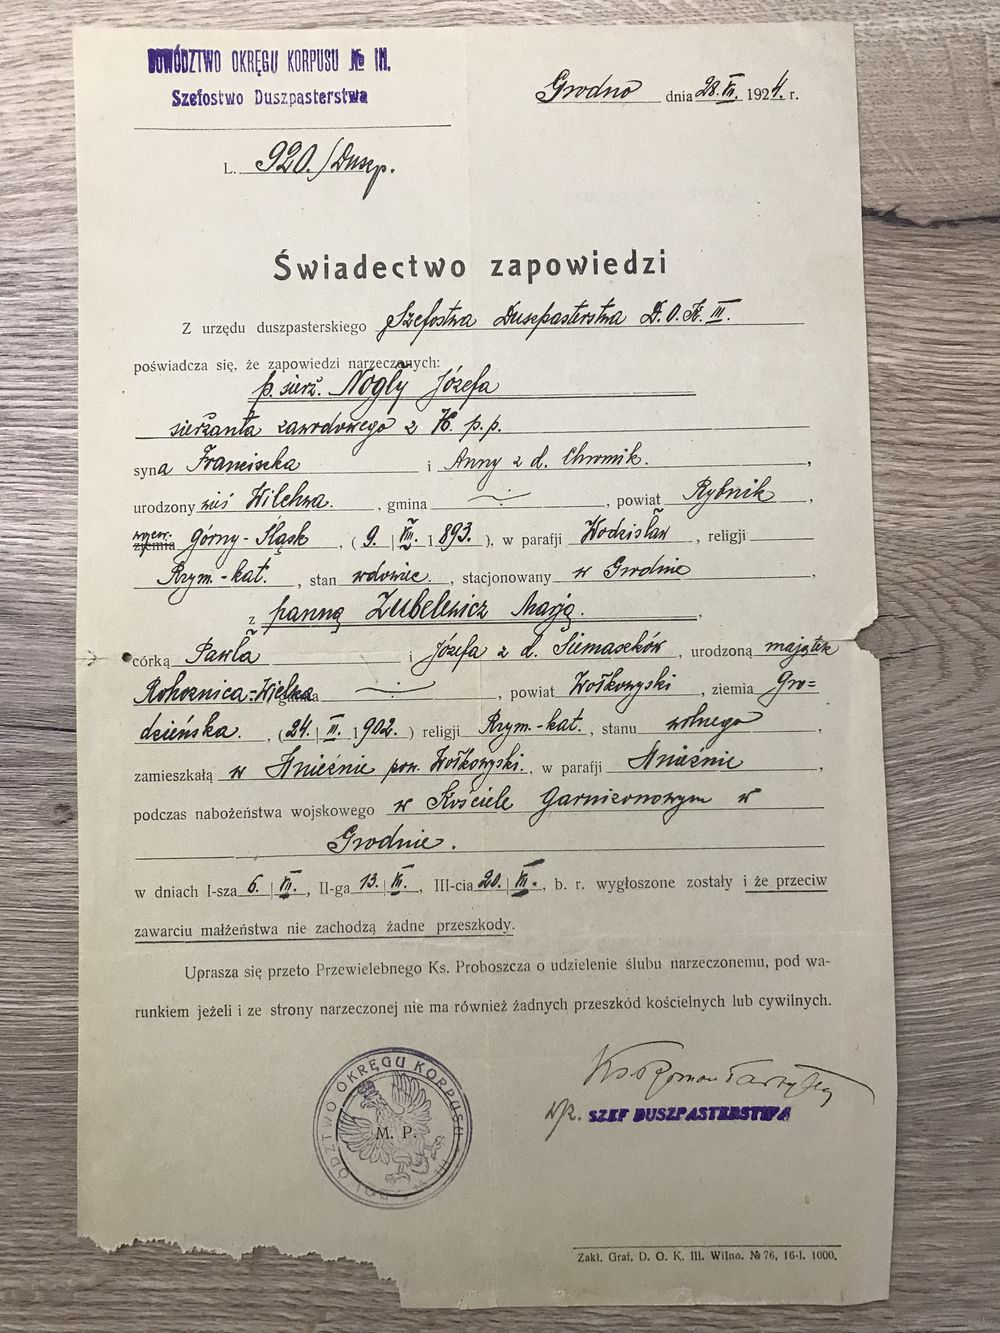 DOWÓDZTWO OKRĘGU KORPUSU № III.
Szefostwo Duszpasterstwa
Grodno dnia 28. VII. 1924. r.
L. 920./Duszp.
Świadectwo zapowiedzi
Z urzędu duszpasterskiego Szefostwa Duszpasterstwa D.O.K. III.
poświadcza się, że zapowiedzi narzeczonych:
p. sierż. Nogły Józefa
sierżanta zawodowego z 76 p.p.
syna Franciszka i Anny z d. Chromik.
urodzony wieś Wilchwa. , gmina –:– , powiat Rybnik ,
ziemia Górny-Śląsk , ( 9. | III. 1893. ), w parafji Wodzisław , religji
Rzym.-kat. , stan wdowiec. , stacjonowany w Grodnie ,
z panną Zubelewicz Marją. ,
córką Pawła i Józefa z d. Siemaszków , urodzoną majątek
Rohoznica-Wielka gmina –:– , powiat Wołkowyski , ziemia Gro=
dzieńska. , ( 24. | III. 1902. ) religji Rzym.-kat. , stanu wolnego ,
zamieszkałą w Hnieźnie pow. Wołkowyski. , w parafji Hnieźnie ,
podczas nabożeństwa wojskowego w Kościele Garnizonowym w
Grodnie.
w dniach I-sza 6. | VII. , II-ga 13. | VII. , III-cia 20. | VII. , b. r. wygłoszone zostały i że przeciw
zawarciu małżeństwa nie zachodzą żadne przeszkody.
Uprasza się przeto Przewielebnego Ks. Proboszcza o udzielenie ślubu narzeczonemu, pod wa-
runkiem jeżeli i ze strony narzeczonej nie ma również żadnych przeszkód kościelnych lub cywilnych.
ODZTWO OKRĘGU KORPUSU
M. P.
Ks Roman
SZEF DUSZPASTERSTWA
Zakł. Graf. D. O. K. III. Wilno. № 76, 16-I. 1000.